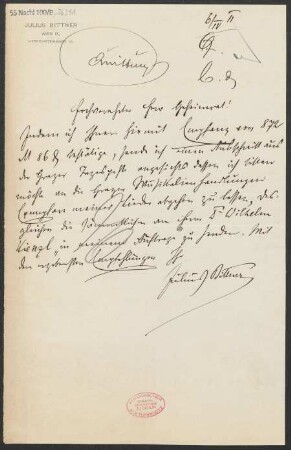 JULIUS BITTNER
WIEN
Quittung
Hochverehrter Herr Geheimrat!
Indem ich Ihnen hiermit Empfang von 872
M 86 bestätige, sende ich eine Abschrift aus
der Grazer Tagespost angesichts dessen ich bitten
möchte an die Grazer Musikalienhandlungen
Exemplare meiner Lieder abgehen zu lassen. Des
gleichen die an Herrn Dr Wilhelm
Kienzl in meinem Auftrage zu senden. Mit
den ergebensten Empfehlungen Ihr
Julius Bittner